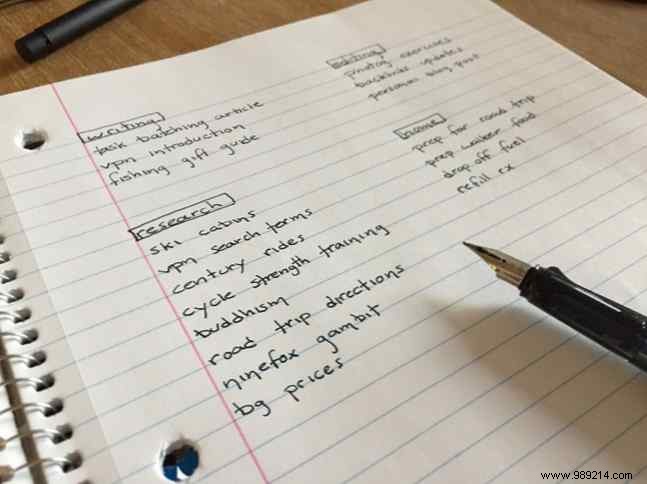 writing
task batching article
vpn introduction
fishing gift guide
research
ski cabins
vpn search terms
century rides
cycle strength training
buddhism
road trip directions
ninefox gambit
bg prices
editing
photog exercises
backlinks updates
personal blog post
home
prep for road trip
prep walker food
drop off fuel
refill rx
www.989214.com